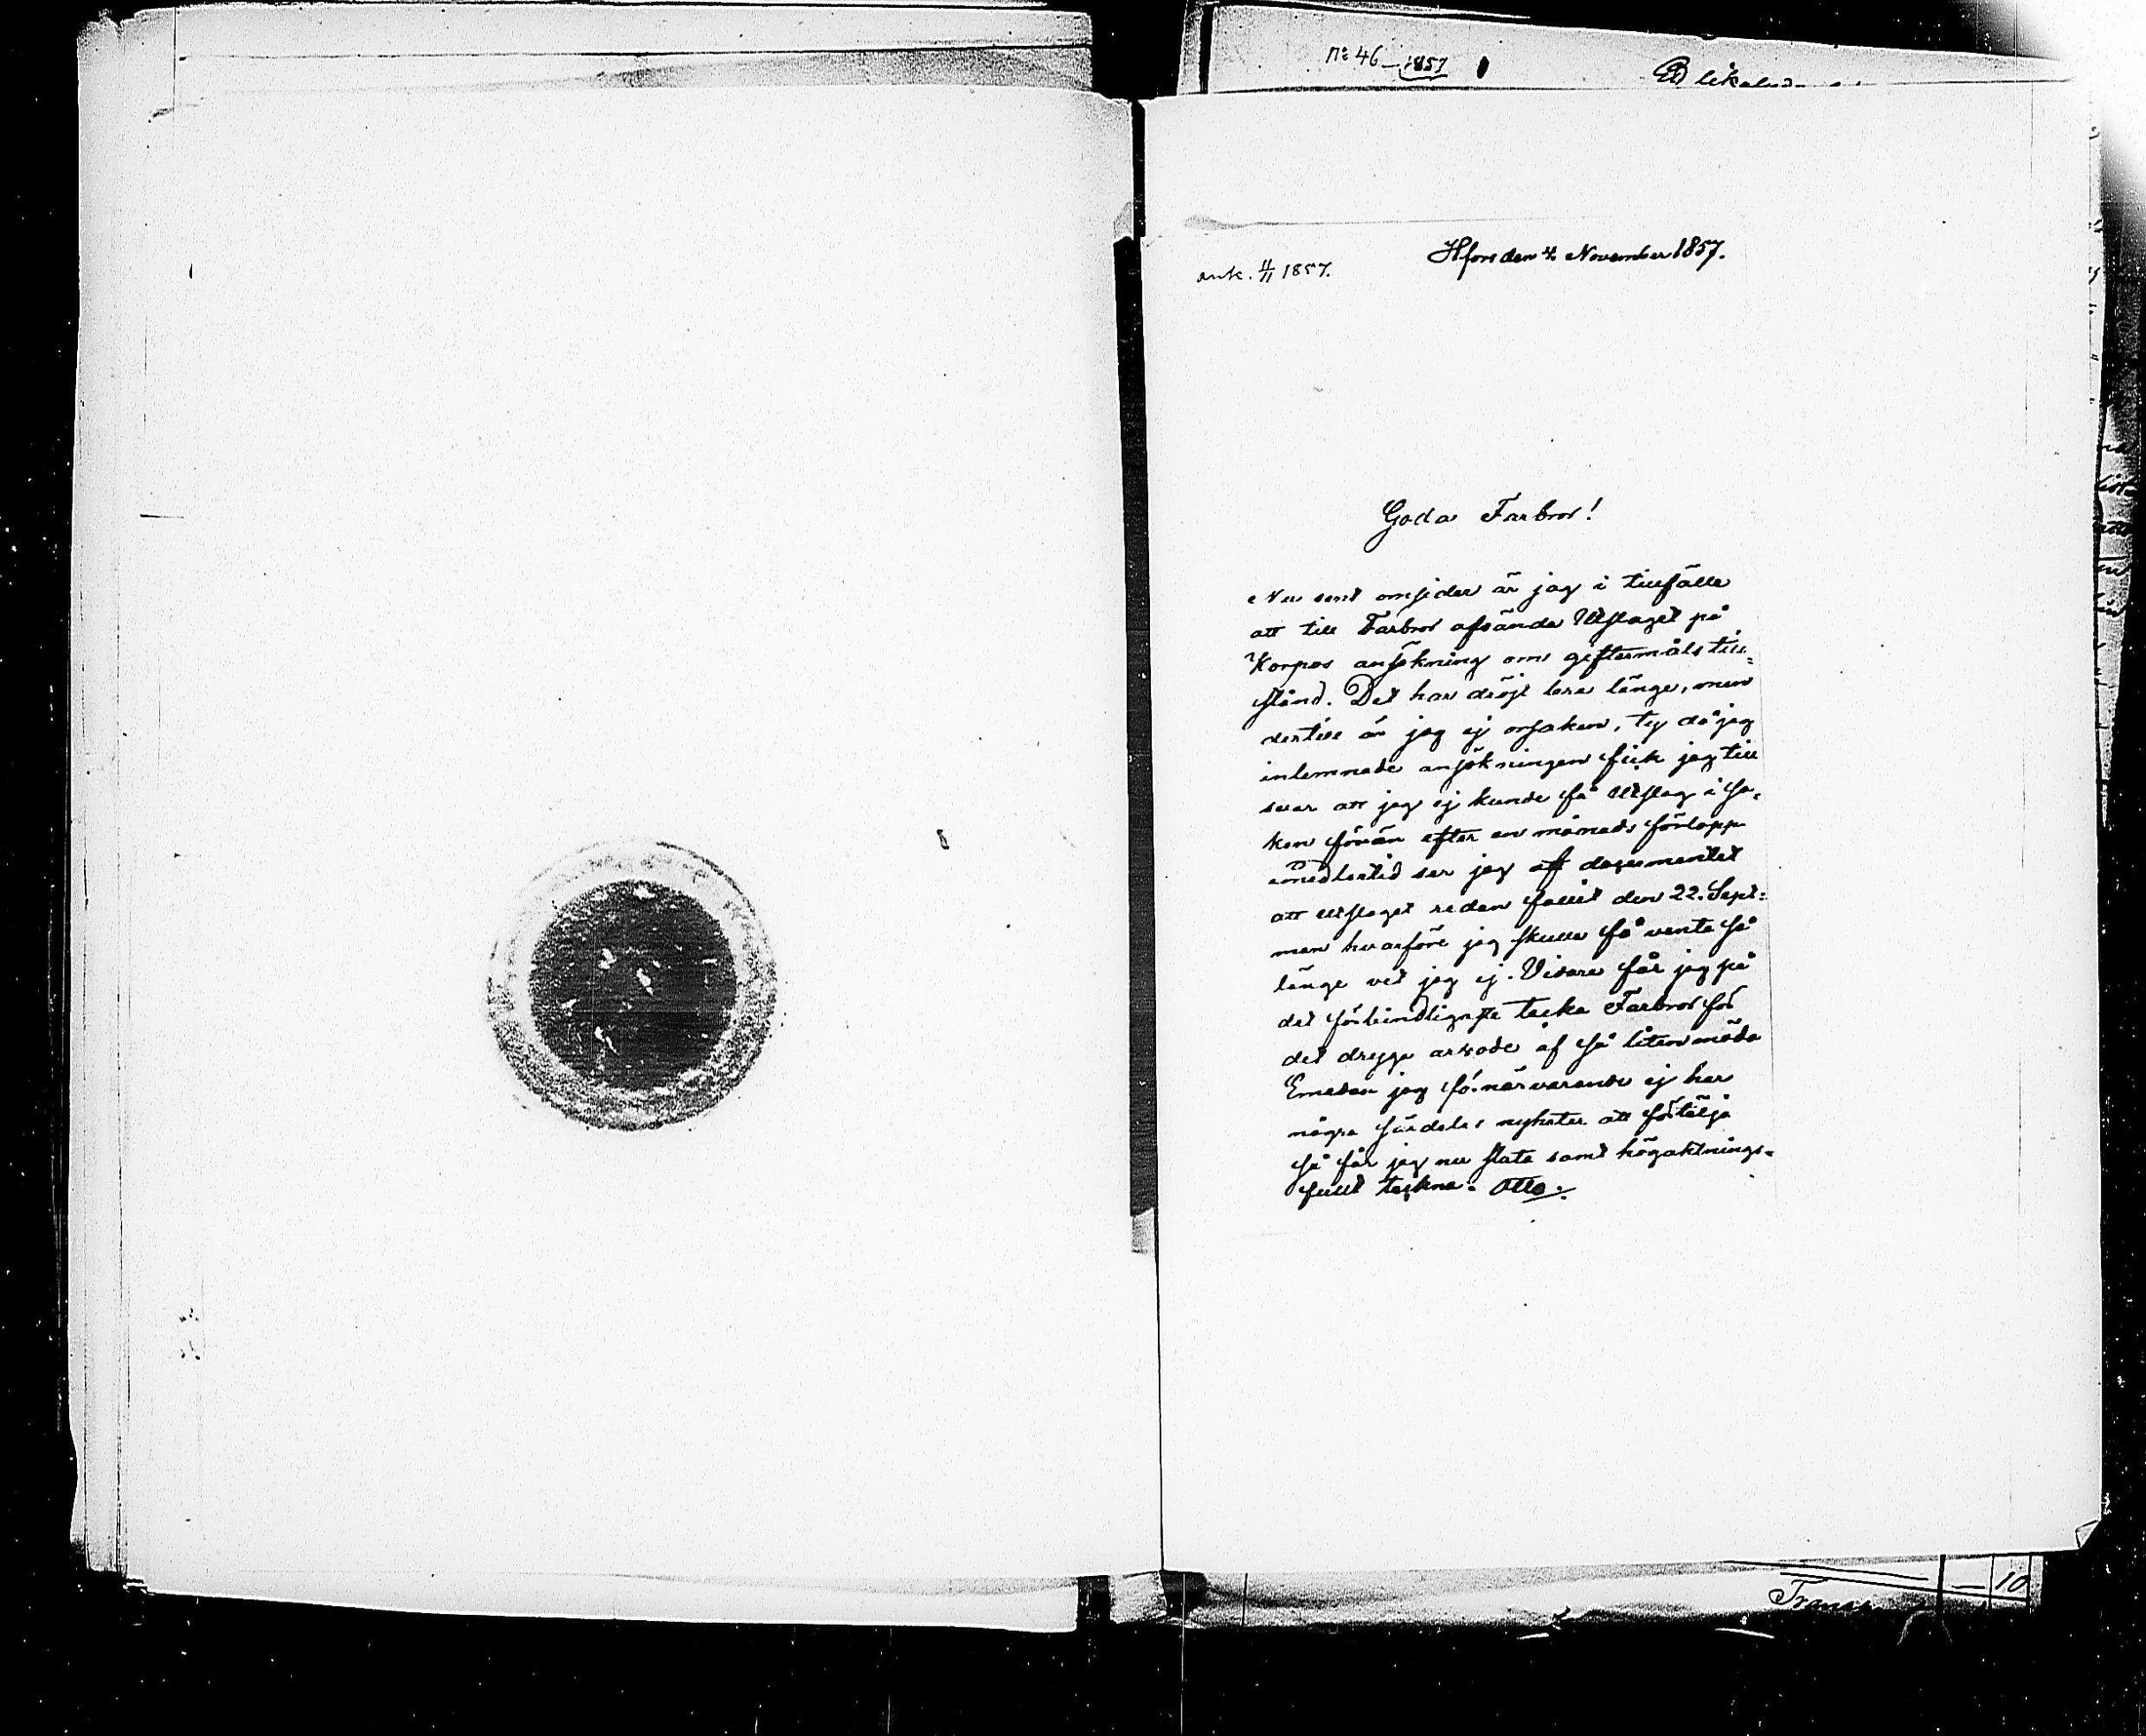 No 46 – 1857
Hfors den 4 November 1857.
ank. 11/11 1857.
Goda Farbror!
Nu sent omsider är jag i tillfälle
att till Farbror afsända Utslaget på
Korpos ansökning om giftermåls till-
stånd. Det har dröjt bra länge, men
dertill är jag ej orsaken, ty då jag
inlemnade ansökningen fick jag till
svar att jag ej kunde få Utslag i sa-
ken förrän efter en månads förlopp
emedlertid ser jag af documentet
att utslaget redan fallit den 22. Sept:
men hvarföre jag skulle få vänta så
länge vet jag ej. Vidare får jag på
det förbindligaste tacka Farbror för
det dryga arvode af så liten möda
Emedan jag för närvarande ej har
några särdeles nyheter att förtälja
så får jag nu sluta samt högaktnings-
fullt teckna. Otto.
Trans
10